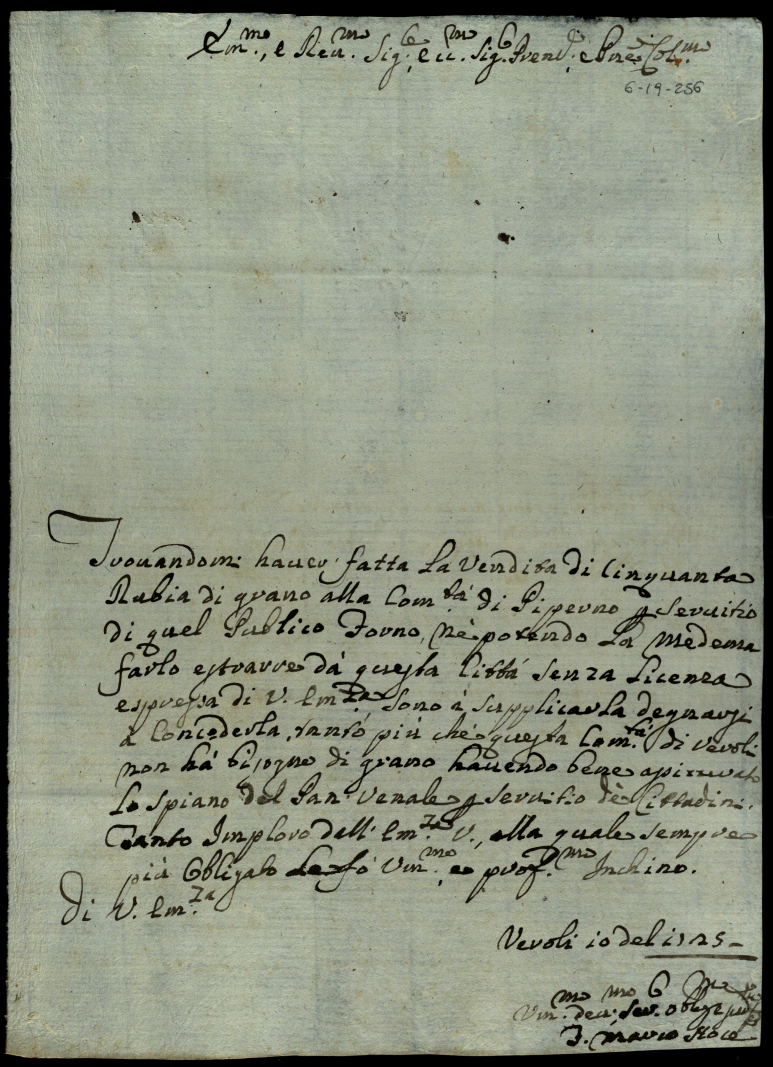 Em.mo, e Reu.mo Sig.e, e Sig. Prend. e Pne Col.mo
6-19-256
Trouandomi hauer fatta la Vendita di Cinquanta
Rubia di grano alla Com.tà di Piperno p seruitio
di quel Publico Forno, nè potendo la medema
farlo estrarre dà questa Città senza licenza
espressa di V. Em.za sono à supplicarla degnarsi
à Concederla, tantò più chè questa Com.tà di Veroli
non hà bisogno di grano hauendo bene assicurato
lo spiano del Pan Venale p seruitio dè Cittadini.
Tanto Imploro dall' Em.za V., alla quale sempre
più Obligato le fó Vm.mo e prof.mo Inchino.
Di V. Em.za
Veroli 10 del 1725
Vm. deu. Ser. oblig
D. Marco